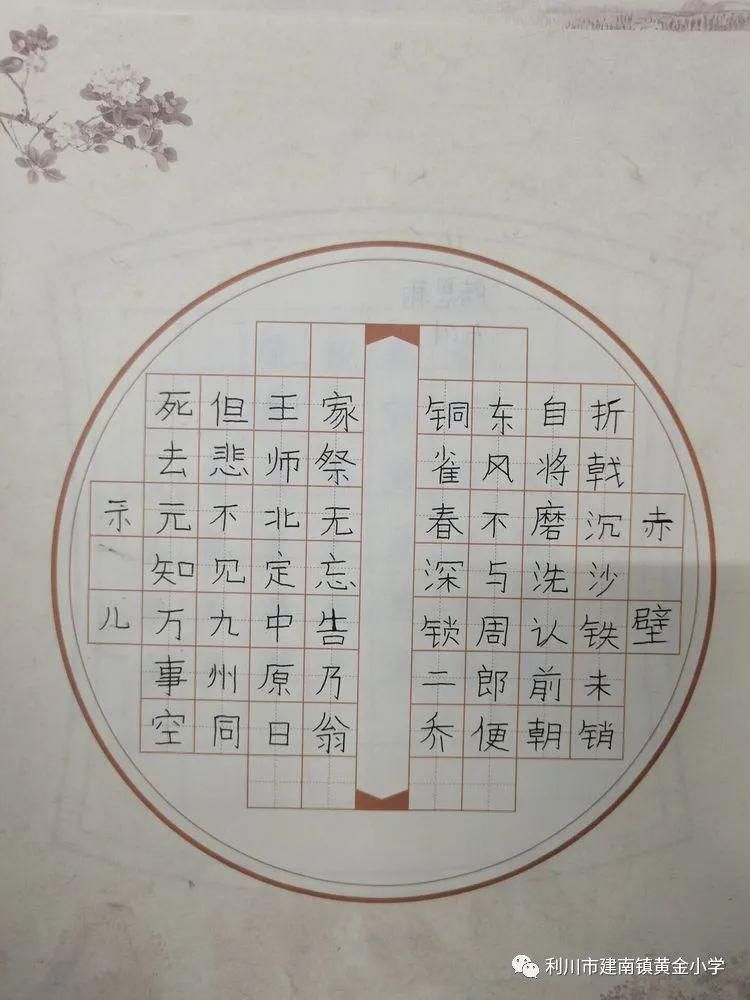 赤壁
折戟沉沙铁未销
自将磨洗认前朝
东风不与周郎便
铜雀春深锁二乔
示儿
死去元知万事空
但悲不见九州同
王师北定中原日
家祭无忘告乃翁
利川市建南镇黄金小学